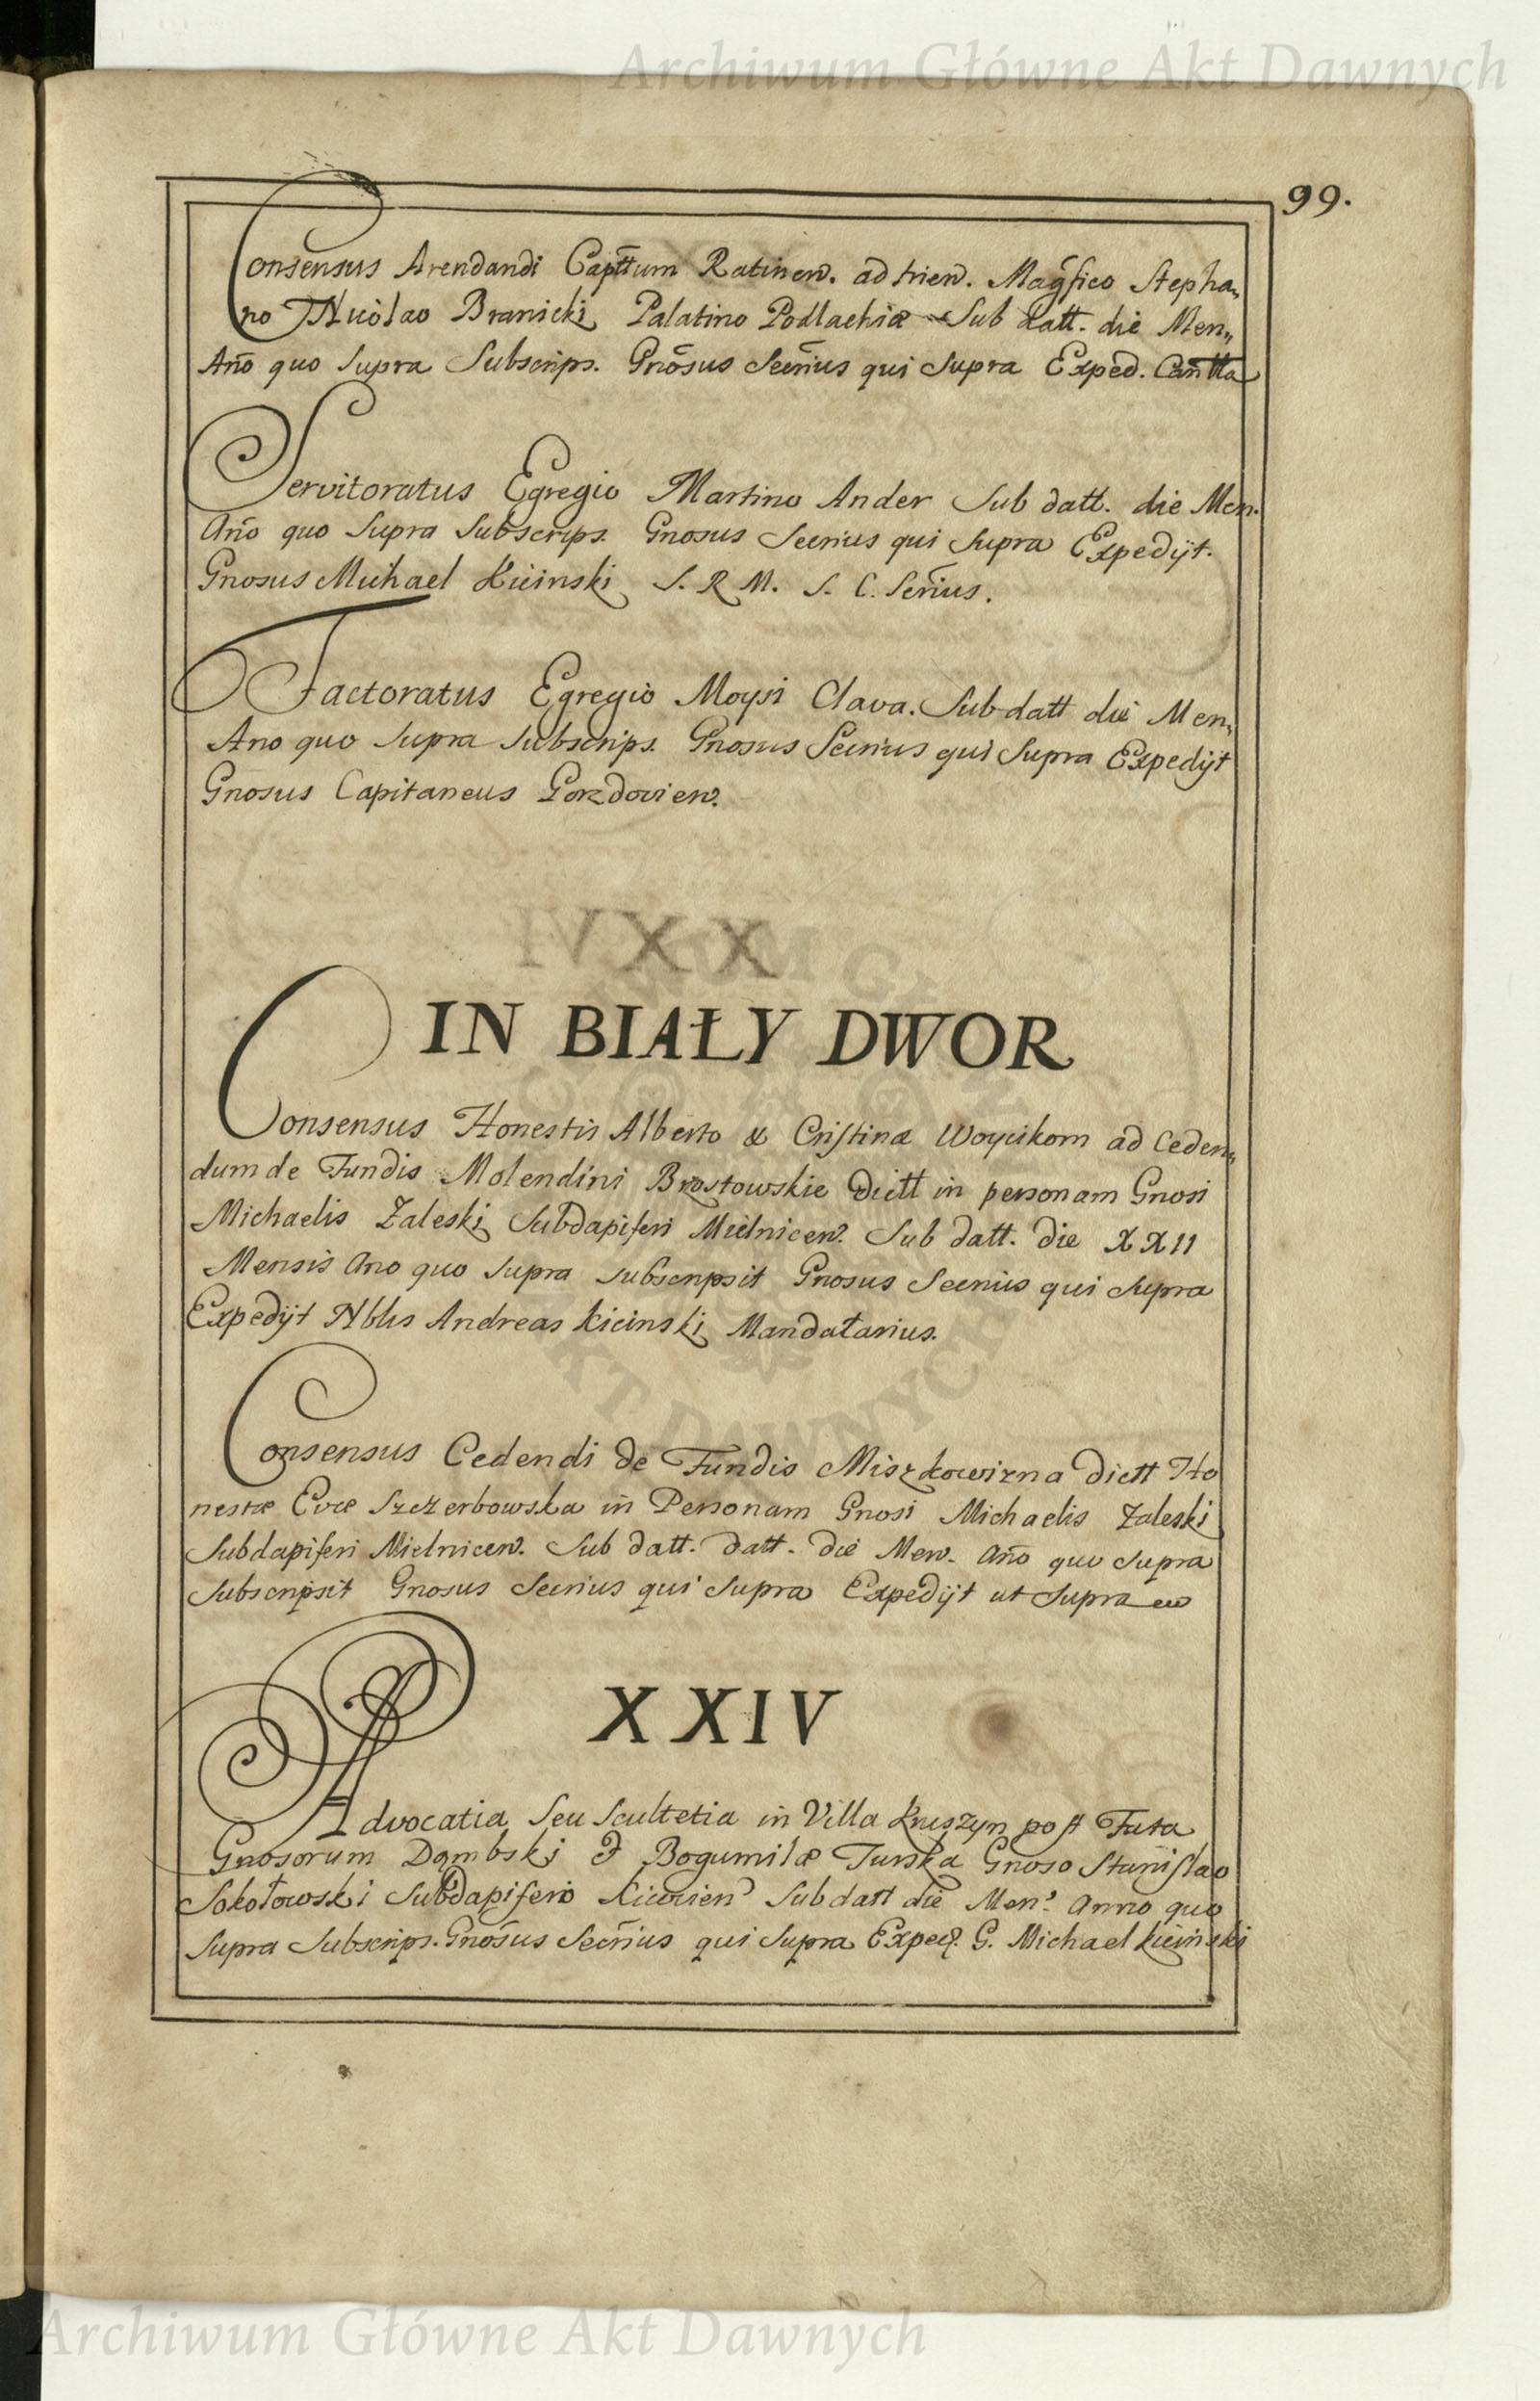 Archiwum Główne Akt Dawnych
99.
Consensus Arendandi Capttum Ratinen. ad trien. Magfico Stepha„
no Nicolao Branicki Palatino Podlachiæ Sub datt. die Men„
Año quo Supra Subscrips. Gnosus Secrius qui Supra Exped. Cantta
Servitoratus Egregio Martino Ander Sub datt. die Men.
Año quo Supra Subscrips. Gnosus Secrius qui Supra Expedijt.
Gnosus Michael Kicinski S. R M. S. C. Serius.
Factoratus Egregio Moysi Clava. Sub datt die Men„
Ano quo Supra Subscrips. Gnosus Secrius qui Supra Expedijt
Gnosus Capitaneus Gorzdovien.
IN BIAŁY DWOR
Consensus Honestis Alberto & Cristinæ Woycikom ad Ceden„
dum de Fundis Molendini Brostowskie dictt in personam Gnosi
Michaelis Zaleski Subdapiferi Mielnicen. Sub datt. die XXII
Mensis Ano quo Supra subscripsit Gnosus Secrius qui Supra
Expedijt Nblis Andreas Kicinski Mandatarius.
Consensus Cedendi de Fundis Miszkowizna dictt Ho
nestæ Evæ Szczerbowska in Personam Gnosi Michaelis Zaleski
Subdapiferi Mielnicen. Sub datt. datt. die Men. Año quo Supra
Subscripsit Gnosus Secrius qui Supra Expedijt ut Supra
XXIV
Advocatia Seu Scultetia in Villa Kruszyn post Fata
Gnosorum Dąmbski & Bogumilæ Turska Gnoso Stanislao
Sokołowski Subdapifero Kiovien Sub datt die Men. Anno quo
Supra Subscrips. Gnosus Secrius qui Supra Exped. G. Michael Kicinski
Archiwum Główne Akt Dawnych